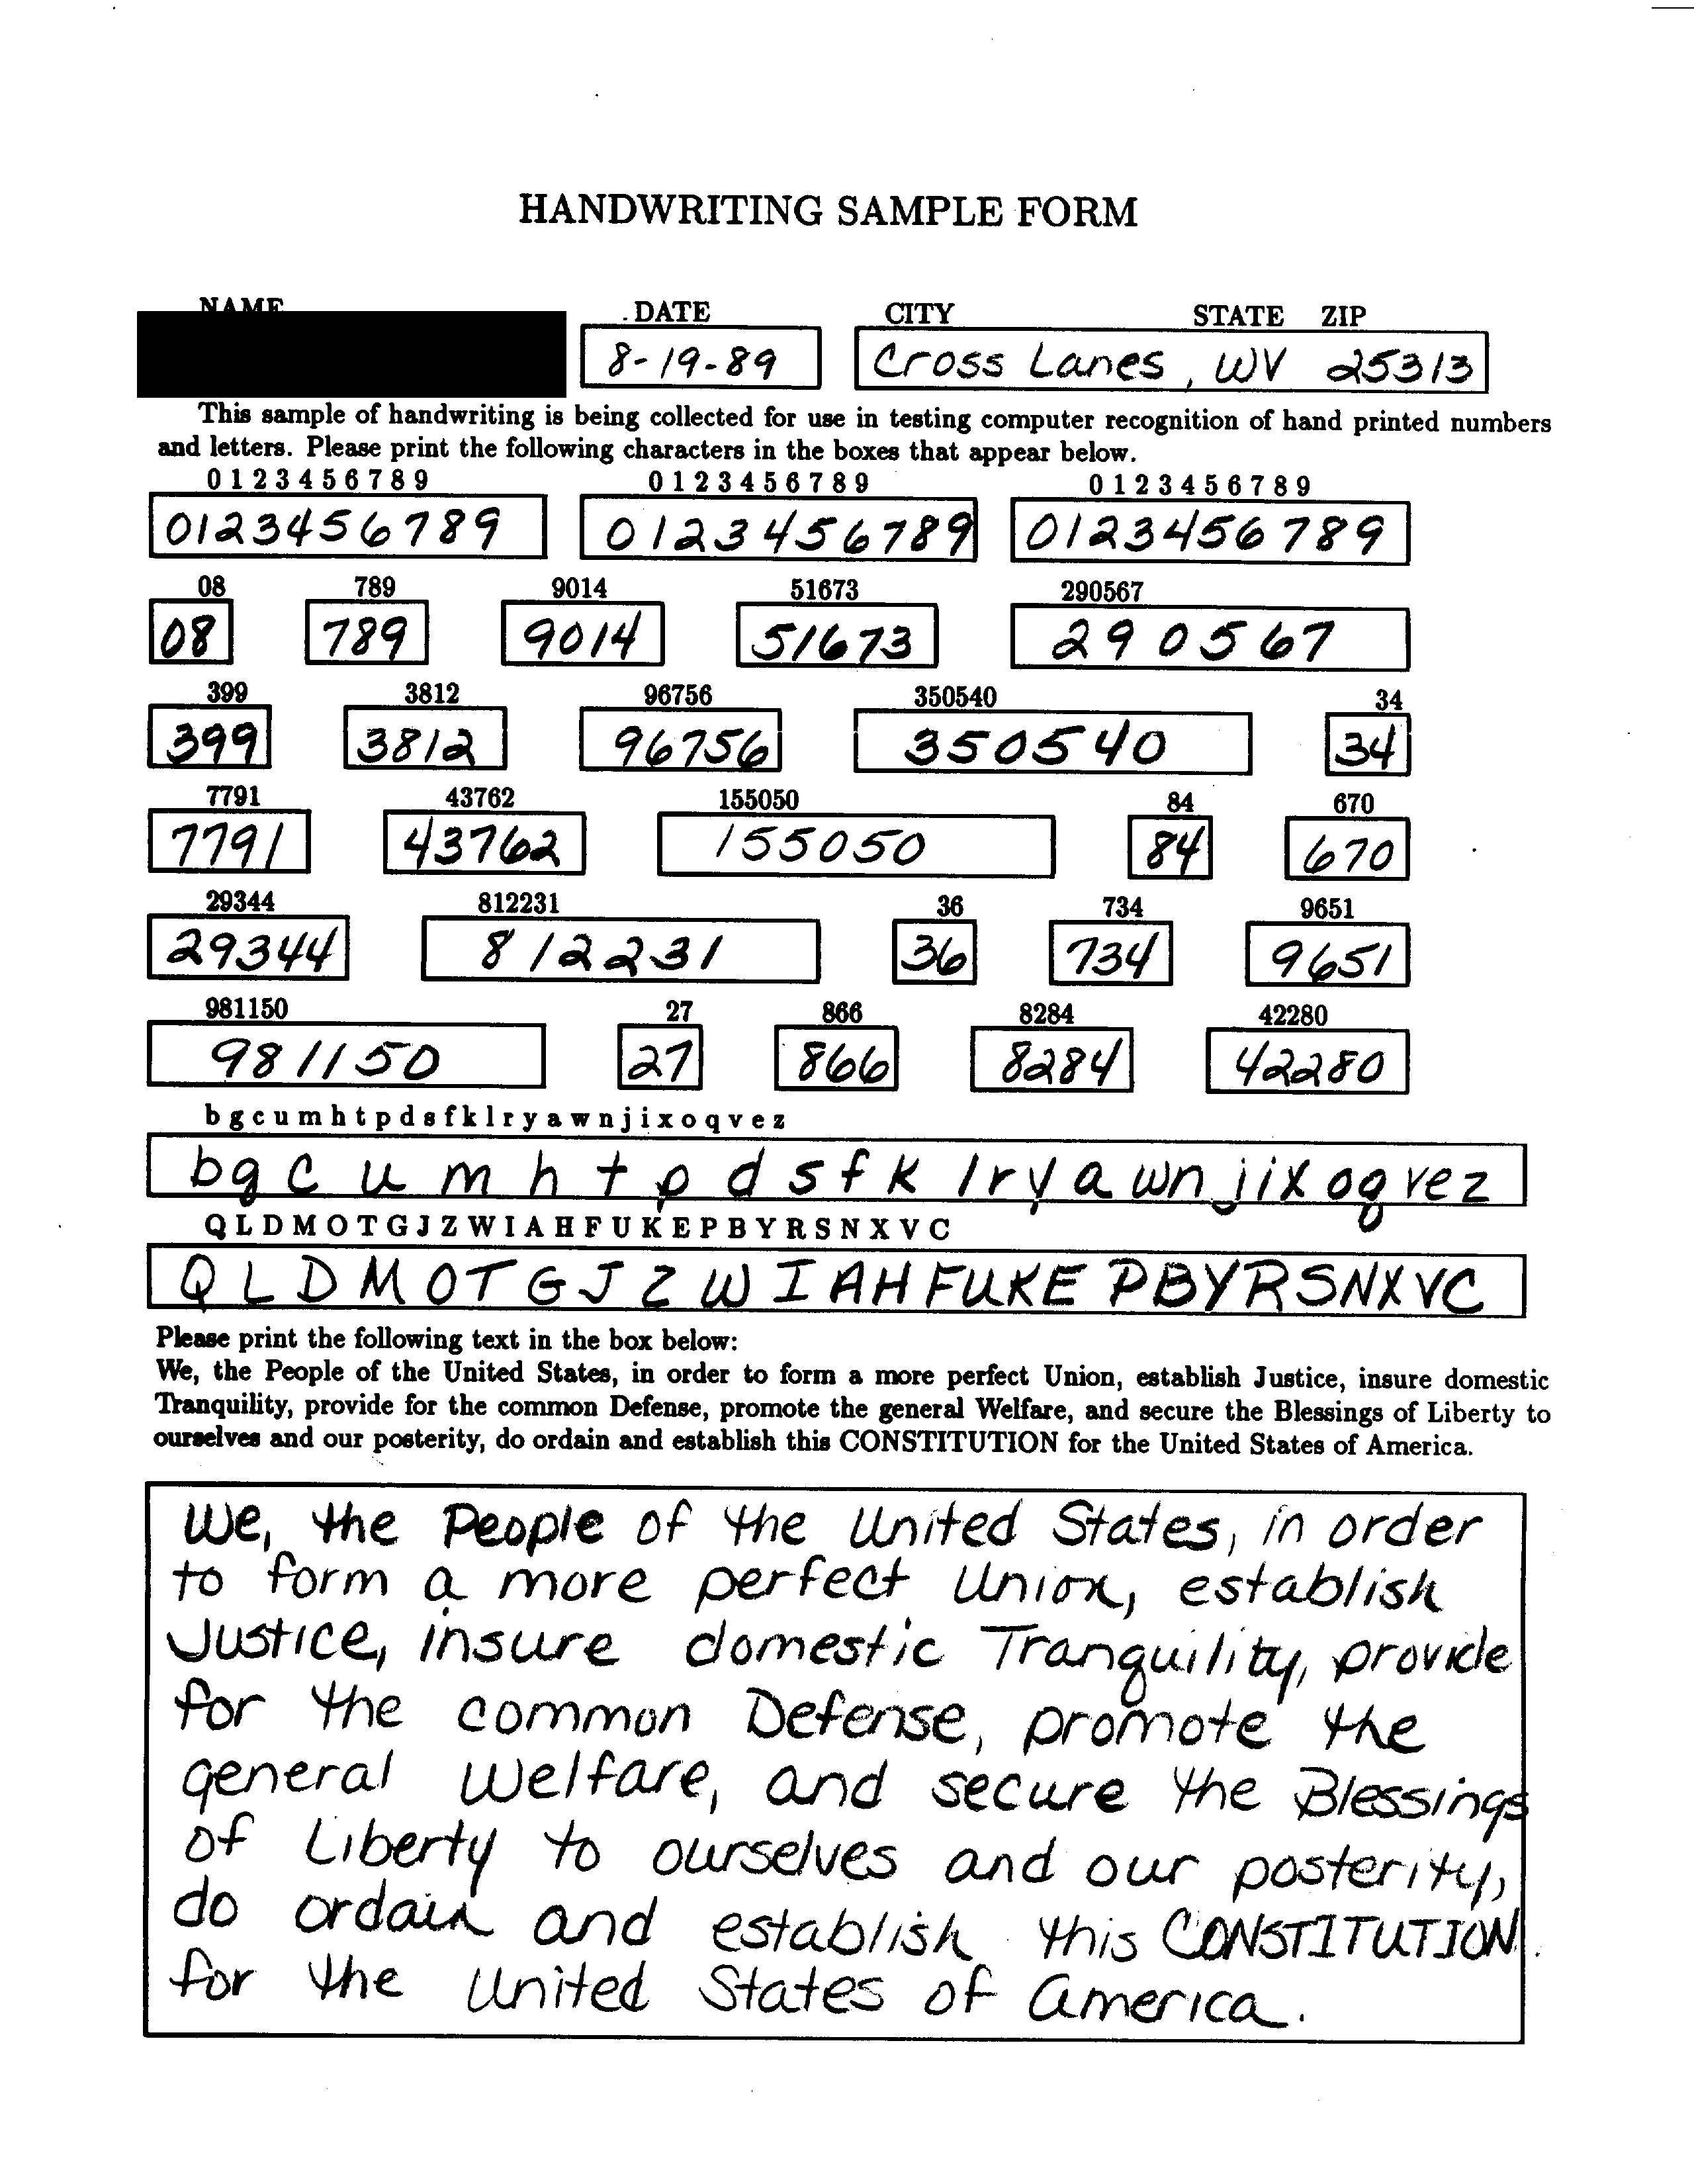 HANDWRITING SAMPLE FORM
NAME DATE CITY STATE ZIP
8-19-89 Cross Lanes, WV 25313
This sample of handwriting is being collected for use in testing computer recognition of hand printed numbers
and letters. Please print the following characters in the boxes that appear below.
0 1 2 3 4 5 6 7 8 9 0 1 2 3 4 5 6 7 8 9 0 1 2 3 4 5 6 7 8 9
0123456789 0123456789 0123456789
08 789 9014 51673 290567
08 789 9014 51673 290567
399 3812 96756 350540 34
399 3812 96756 350540 34
7791 43762 155050 84 670
7791 43762 155050 84 670
29344 812231 36 734 9651
29344 812231 36 734 9651
981150 27 866 8284 42280
981150 27 866 8284 42280
b g c u m h t p d s f k l r y a w n j i x o q v e z
b g c u m h t p d s f k l r y a w n j i x o q v e z
Q L D M O T G J Z W I A H F U K E P B Y R S N X V C
Q L D M O T G J Z W I A H F U K E P B Y R S N X V C
Please print the following text in the box below:
We, the People of the United States, in order to form a more perfect Union, establish Justice, insure domestic
Tranquility, provide for the common Defense, promote the general Welfare, and secure the Blessings of Liberty to
ourselves and our posterity, do ordain and establish this CONSTITUTION for the United States of America.
We, the People of the United States, in order
to form a more perfect Union, establish
Justice, insure domestic Tranquility, provide
for the common Defense, promote the
general Welfare, and secure the Blessings
of Liberty to ourselves and our posterity,
do ordain and establish this CONSTITUTION
for the United States of America.